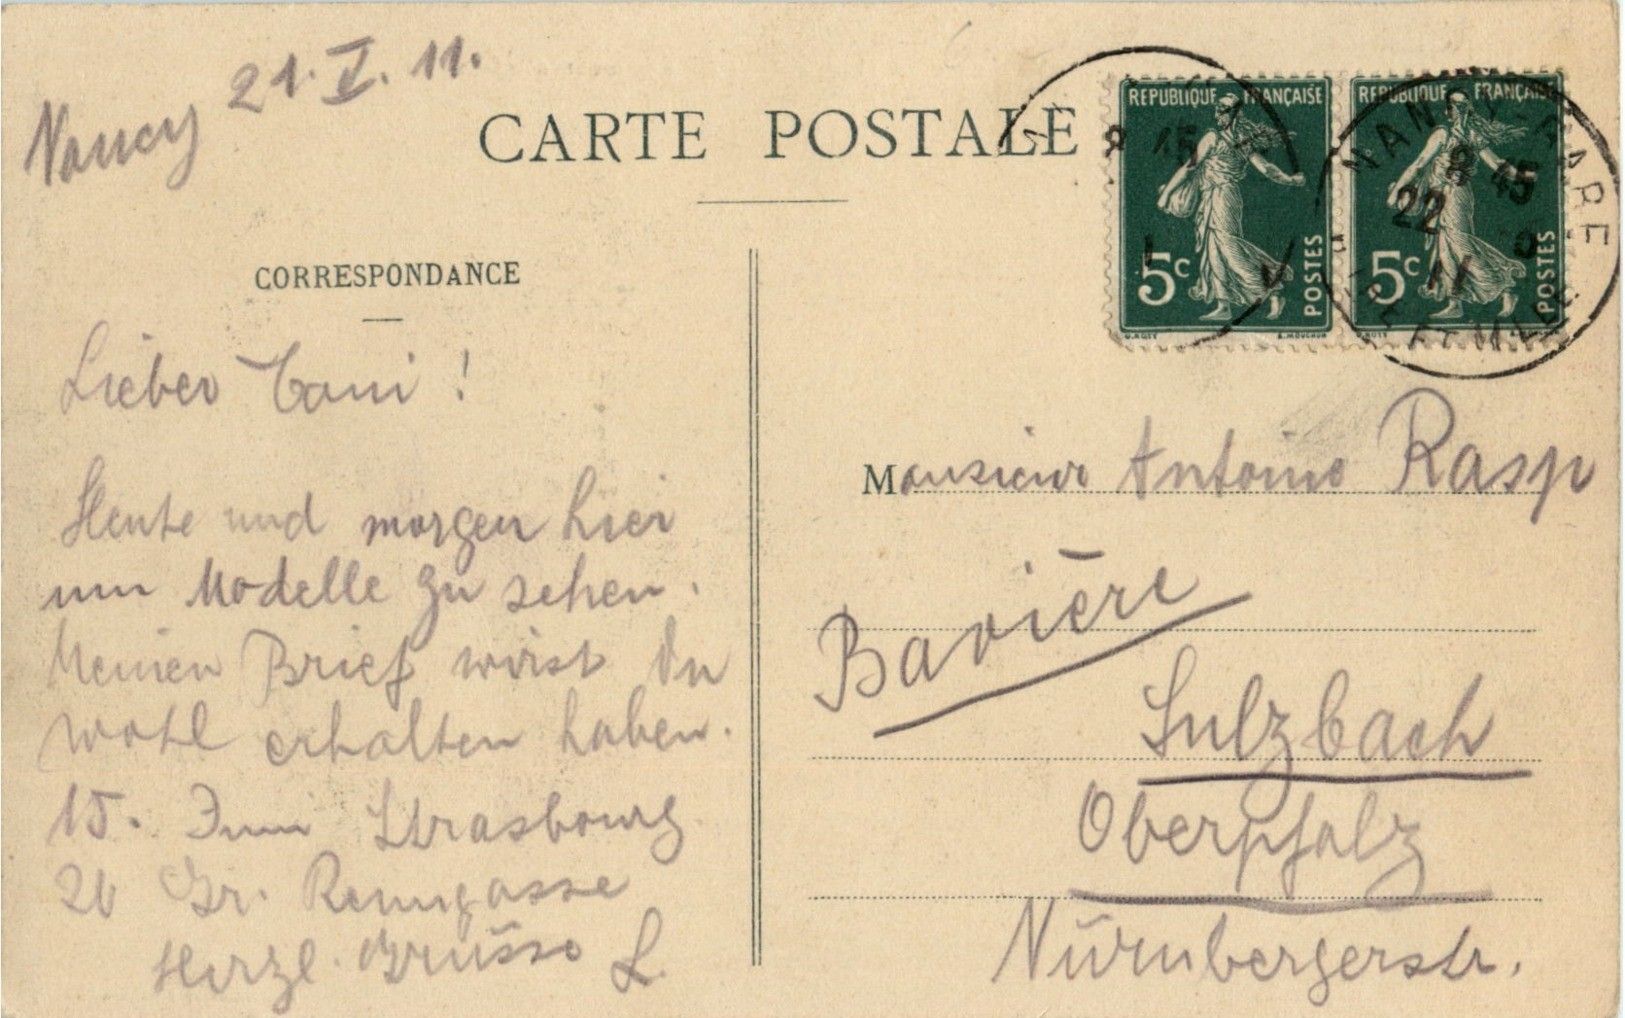 Nancy 21. V. 11.
CARTE POSTALE
REPUBLIQUE FRANÇAISE
5c
POSTES
REPUBLIQUE FRANÇAISE
5c
POSTES
NANCY-GARE
8 45
22
11
CORRESPONDANCE
Lieber Toni!
Heute und morgen hier
um Modelle zu sehen.
Meinen Brief wirst Du
wohl erhalten haben.
15. Juni Strasbourg
Gr. Renngasse
Herzl. Grüsse L.
Monsieur Antonio Rasp
Bavière
Sulzbach
Oberpfalz
Nürnbergerstr.